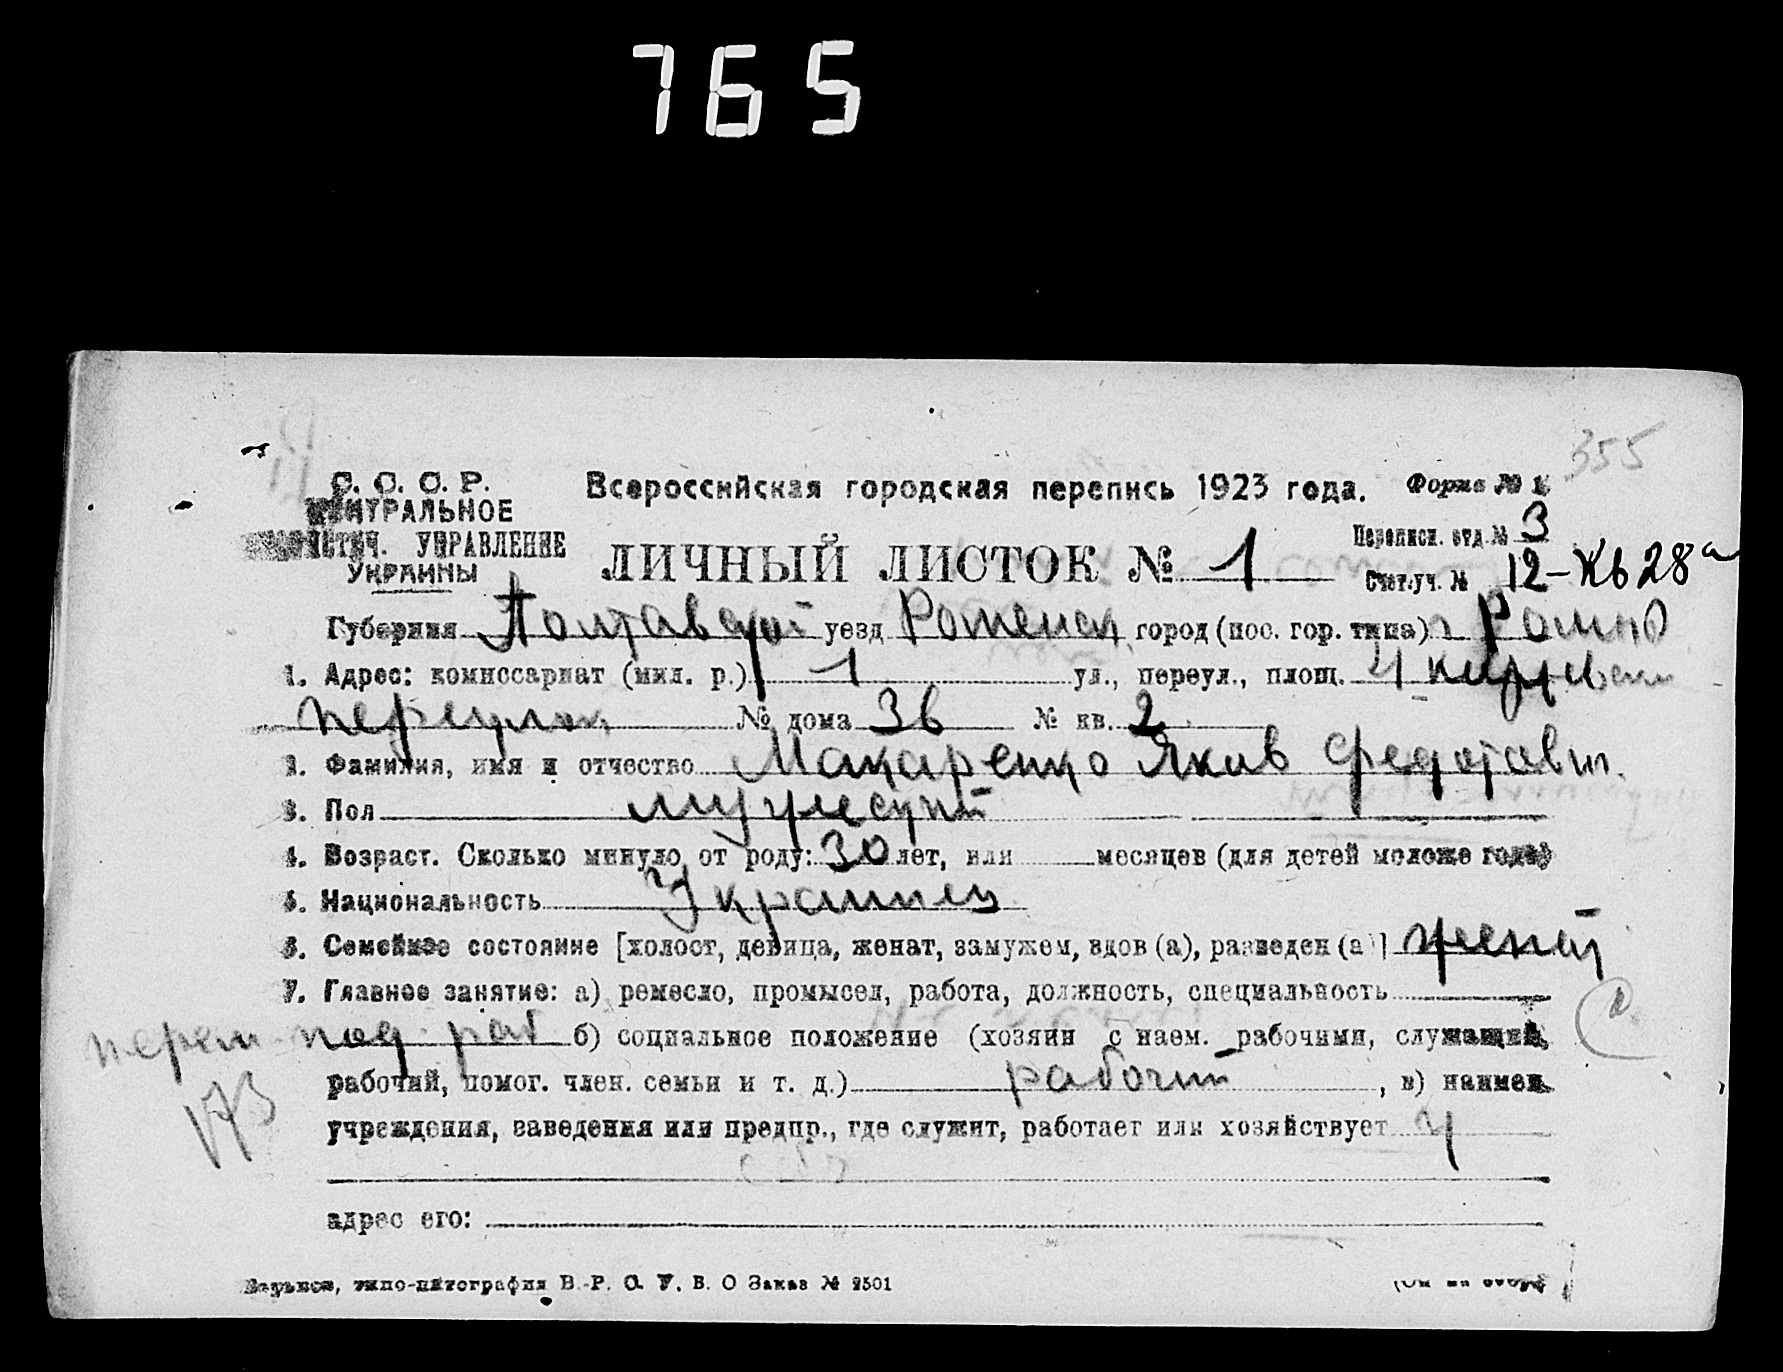 765
355
С. С. С. Р.
ЦЕНТРАЛЬНОЕ
СТАТИСТИЧ. УПРАВЛЕНИЕ
УКРАИНЫ
Всероссийская городская перепись 1923 года.
Форма № 1
ЛИЧНЫЙ ЛИСТОК № 1
Переписн. отд. № 3
Счет. уч. № 12-Кв 28а
Губерния Полтавской уезд Роменск город (пос. гор. типа) г Ромны
1. Адрес: комиссариат (мил. р.) 1 ул., переул., площ. 4
переулок № дома 36 № кв. 2
2. Фамилия, имя и отчество Макаренко Яков Федотович.
3. Пол мужеский
4. Возраст. Сколько минуло от роду: 30 лет, или месяцев (для детей моложе года)
5. Национальность Украинец
6. Семейное состояние [холост, девица, женат, замужем, вдов (а), разведен (а)] женат
7. Главное занятие: а) ремесло, промысел, работа, должность, специальность
раб б) социальное положение (хозяин с наем. рабочими, служащий,
173
рабочий, помог. член. семьи и т. д.) рабочий, в) наимен.
учреждения, заведения или предпр., где служит, работает или хозяйствует
адрес его:
Харьков, типо-литография В.-Р. С. У. В. О Заказ № 2501